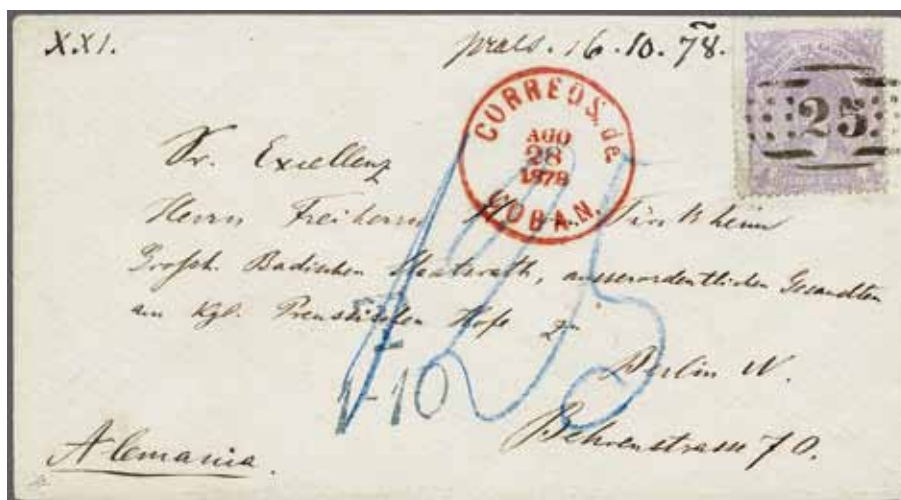 XXI.
praes. 16.10.78.
CORREOS. de
AGO
28
1878
COBAN.
25
Sr. Excellenz
Herrn Freiherrn H. v. Türckheim
Großh. Badischen Staatsrath, ausserordentlichen Gesandten
am Kgl. Preussischen Hofe zu
Berlin W.
Behrenstrasse 70.
T
1-10
Alemania.